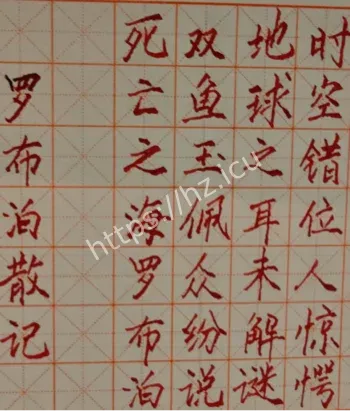 时空错位人惊愕
地球之耳未解谜
双鱼玉佩众纷说
死亡之海罗布泊
罗布泊散记
https://hz.icu